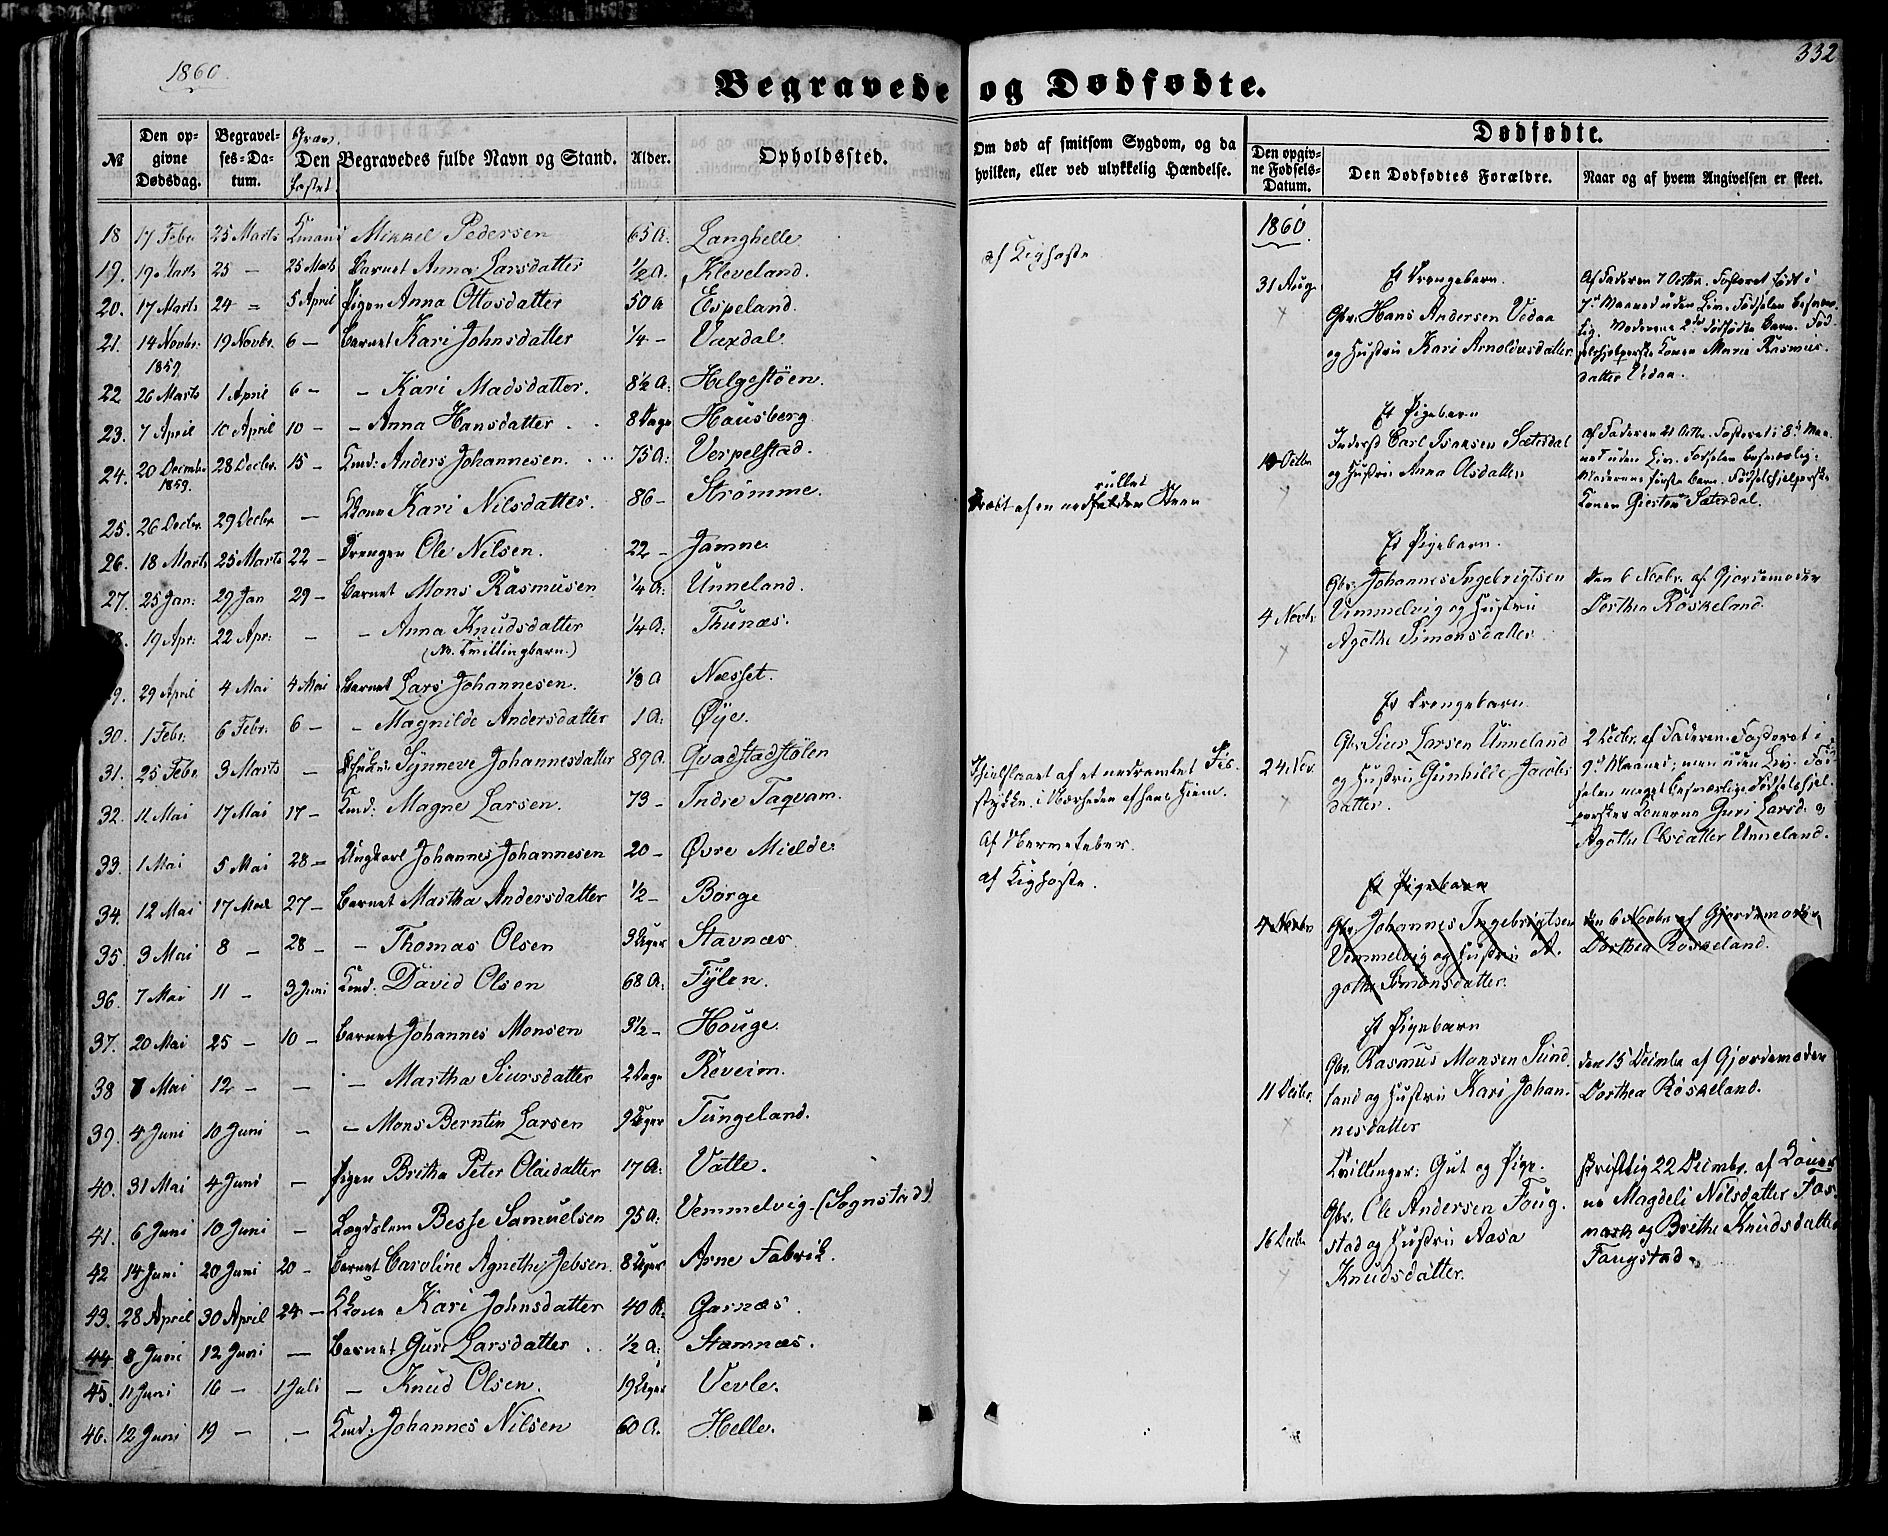 1860.
332
Begravede og Dødfødte.
№
Den opgivne Dødsdag.
Begravelses-Datum.
Den Begravedes fulde Navn og Stand.
Alder.
Opholdssted.
Om død af smitsom Sygdom, og da hvilken, eller ved ulykkelig Hændelse.
Dødfødte.
Den opgivne Fødsels-Datum.
Den Dødfødtes Forældre.
Naar og af hvem Angivelsen er skeet.
18 17 Febr. 25 Marts Mikkel Pedersen 65 A. Langhelle
19. 19 Marts 25 – 25 Marts Barnet Anna Larsdatter 1/2 A. Kleveland.
20. 17 Marts 24 – 5 April Pigen Anna Ottosdatter 50 A Espeland.
21. 14 Novbr. 1859. 19 Novbr. 6 – Barnet Kari Johnsdatter 1/4 – Vaxdal.
22. 26 Marts 1 April 6 – – Kari Madsdatter. 8 1/2 A. Helgestøen.
23. 7 April 10 April 10 – – Anna Hansdatter 8 Dage Hausberg.
24. 20 Decembr 1859. 28 Decbr. 15 – Kmd: Anders Johannesen. 75 A. Verpelstad.
25. 26 Decbr. 29 Decbr. – Kone Kari Nilsdatter. 86 – Strømme.
26. 18 Marts 25 Marts 22 – Drengen Ole Nilsen. 22 – Jamne
27. 25 Jan: 29 Jan 29 – Barnet Mons Rasmusen 1/4 A. Unneland.
19 Apr: 22 Apr: – – Anna Knudsdatter 1/4 A. Thunæs.
(Tvillingbarn.)
29. 29 April 4 Mai 4 Mai Barnet Lars Johannesen. 1/3 A Næsset.
30. 1 Febr. 6 Febr. 6 – – Magnilde Andersdatter 1 A. Øye.
31. 25 Febr. 3 Marts – Synneve Johannesdatter 89 A. Qvadstadstølen
32. 11 Mai 17 Mai 17 – Kmd: Magne Larsen. 73 – Indre Taqvam.
33. 1 Mai 5 Mai 28 – Ungkarl Johannes Johannesen 20 – Øvre Mielde
34. 12 Mai 17 Mai 27 – Barnet Martha Andersdatter 1/2 – Borge
35. 3 Mai 8 – 28 – – Thomas Olsen 3 Uger Stavnæs
36. 7 Mai 11 – 3 Juni Kmd: David Olsen 68 A. Fylen.
37. 20 Mai 25 – 10 – Barnet Johannes Monsen 3 1/2 – Houge.
38 7 Mai 12 – – – Martha Siursdatter 2 Dage Reveim.
39. 4 Juni 10 Juni – – Mons Berntin Larsen 9 Uger Tungeland.
40. 31 Mai 4 Juni – Pigen Britha Peter Olaidatter 17 A. Vatle.
41. 6 Juni 10 Juni – Lægdslem Besse Samuelsen 75 A. Vemmelvig (Sognstad)
42 14 Juni 20 Juni 20 – Barnet Caroline Agnethe Jebsen. 8 Uger Arne Fabrik.
43. 28 April 30 April 24 – Kone Kari Johnsdatter 40 A. Garnæs.
44. 8 Juni 12 Juni – Barnet Guri Larsdatter 1/2 A. Stamnæs.
45. 11 Juni 16 – 1 Juli – Knud Olsen. 19 Uger Vevle.
46. 12 Juni 19 – – Kmd: Johannes Nilsen 60 A. Helle.
af Kighoste
af en ned rullet Steen
Ihielslaaet af et nedramlet
stykke i Nærheden af hans Hiem.
Af Nervefeber.
af Kighoste.
1860.
31 Aug.
Et Drengebarn.
Gbr. Hans Andersen Vedaa
og Hustru Kari Arnoldusdatter
Af Faderen 7 Octbr. Fosteret født i
7d Maaned uden Liv. Fødselen besvær-
lig. Moderens 2det dødfødte Barn. Fød-
selshjelperske Konen Marie Rasmus-
datter Vedaa.
Et Pigebarn
10 Octbr
Inderst Carl Isaksen Sæterdal
og Hustru Anna Olsdatter
af Faderen 21 Octbr. Fosteret i 8d Maa-
ned uden Liv. Fødselen besværlig.
Moderens første Barn. Fødselshjelperske
Konen Giertru Sæterdal.
Et Pigebarn.
4 Novbr
Gbr. Johannes Ingebrigtsen
Vemmelvig og Hustru
Agathe Simonsdatter
den 6 Novbr. af Gjordemoder
Dorthea Røskeland.
Et Drengebarn
24 Nov.
Gbr. Siur Larsen Unneland
og Hustru Gunhilde Jacobs
datter.
2 Decbr. af Faderen. Fosteret i
9d Maaned; men uden Liv. Fød-
selen meget besværlig. Fødselshjel-
persker Konerne Guri Larsd. og
Agathe Olsdatter Unneland.
Et Pigebarn
4 Novbr
Gbr. Johannes Ingebrigtsen
Vemmelvig og Hustru A-
gathe Simonsdatter.
den 6 Novbr af Gjordemoder
Dorthea Røskeland.
Et Pigebarn
11 Decbr.
Gbr. Rasmus Monsen Sund
land og Hustru Kari Johan-
nesdatter
den 15 Decmbr af Gjordemoder
Dorthea Røskeland.
Tvillinger: Gut og Pige.
16 Decbr
Gbr. Ole Andersen Foug-
stad og Hustru Aasa
Knudsdatter.
Skriftlig 22 Decmbr. af Koner
ne Magdeli Nilsdatter Fos-
mark og Brithe Knudsdatter
Fougstad.